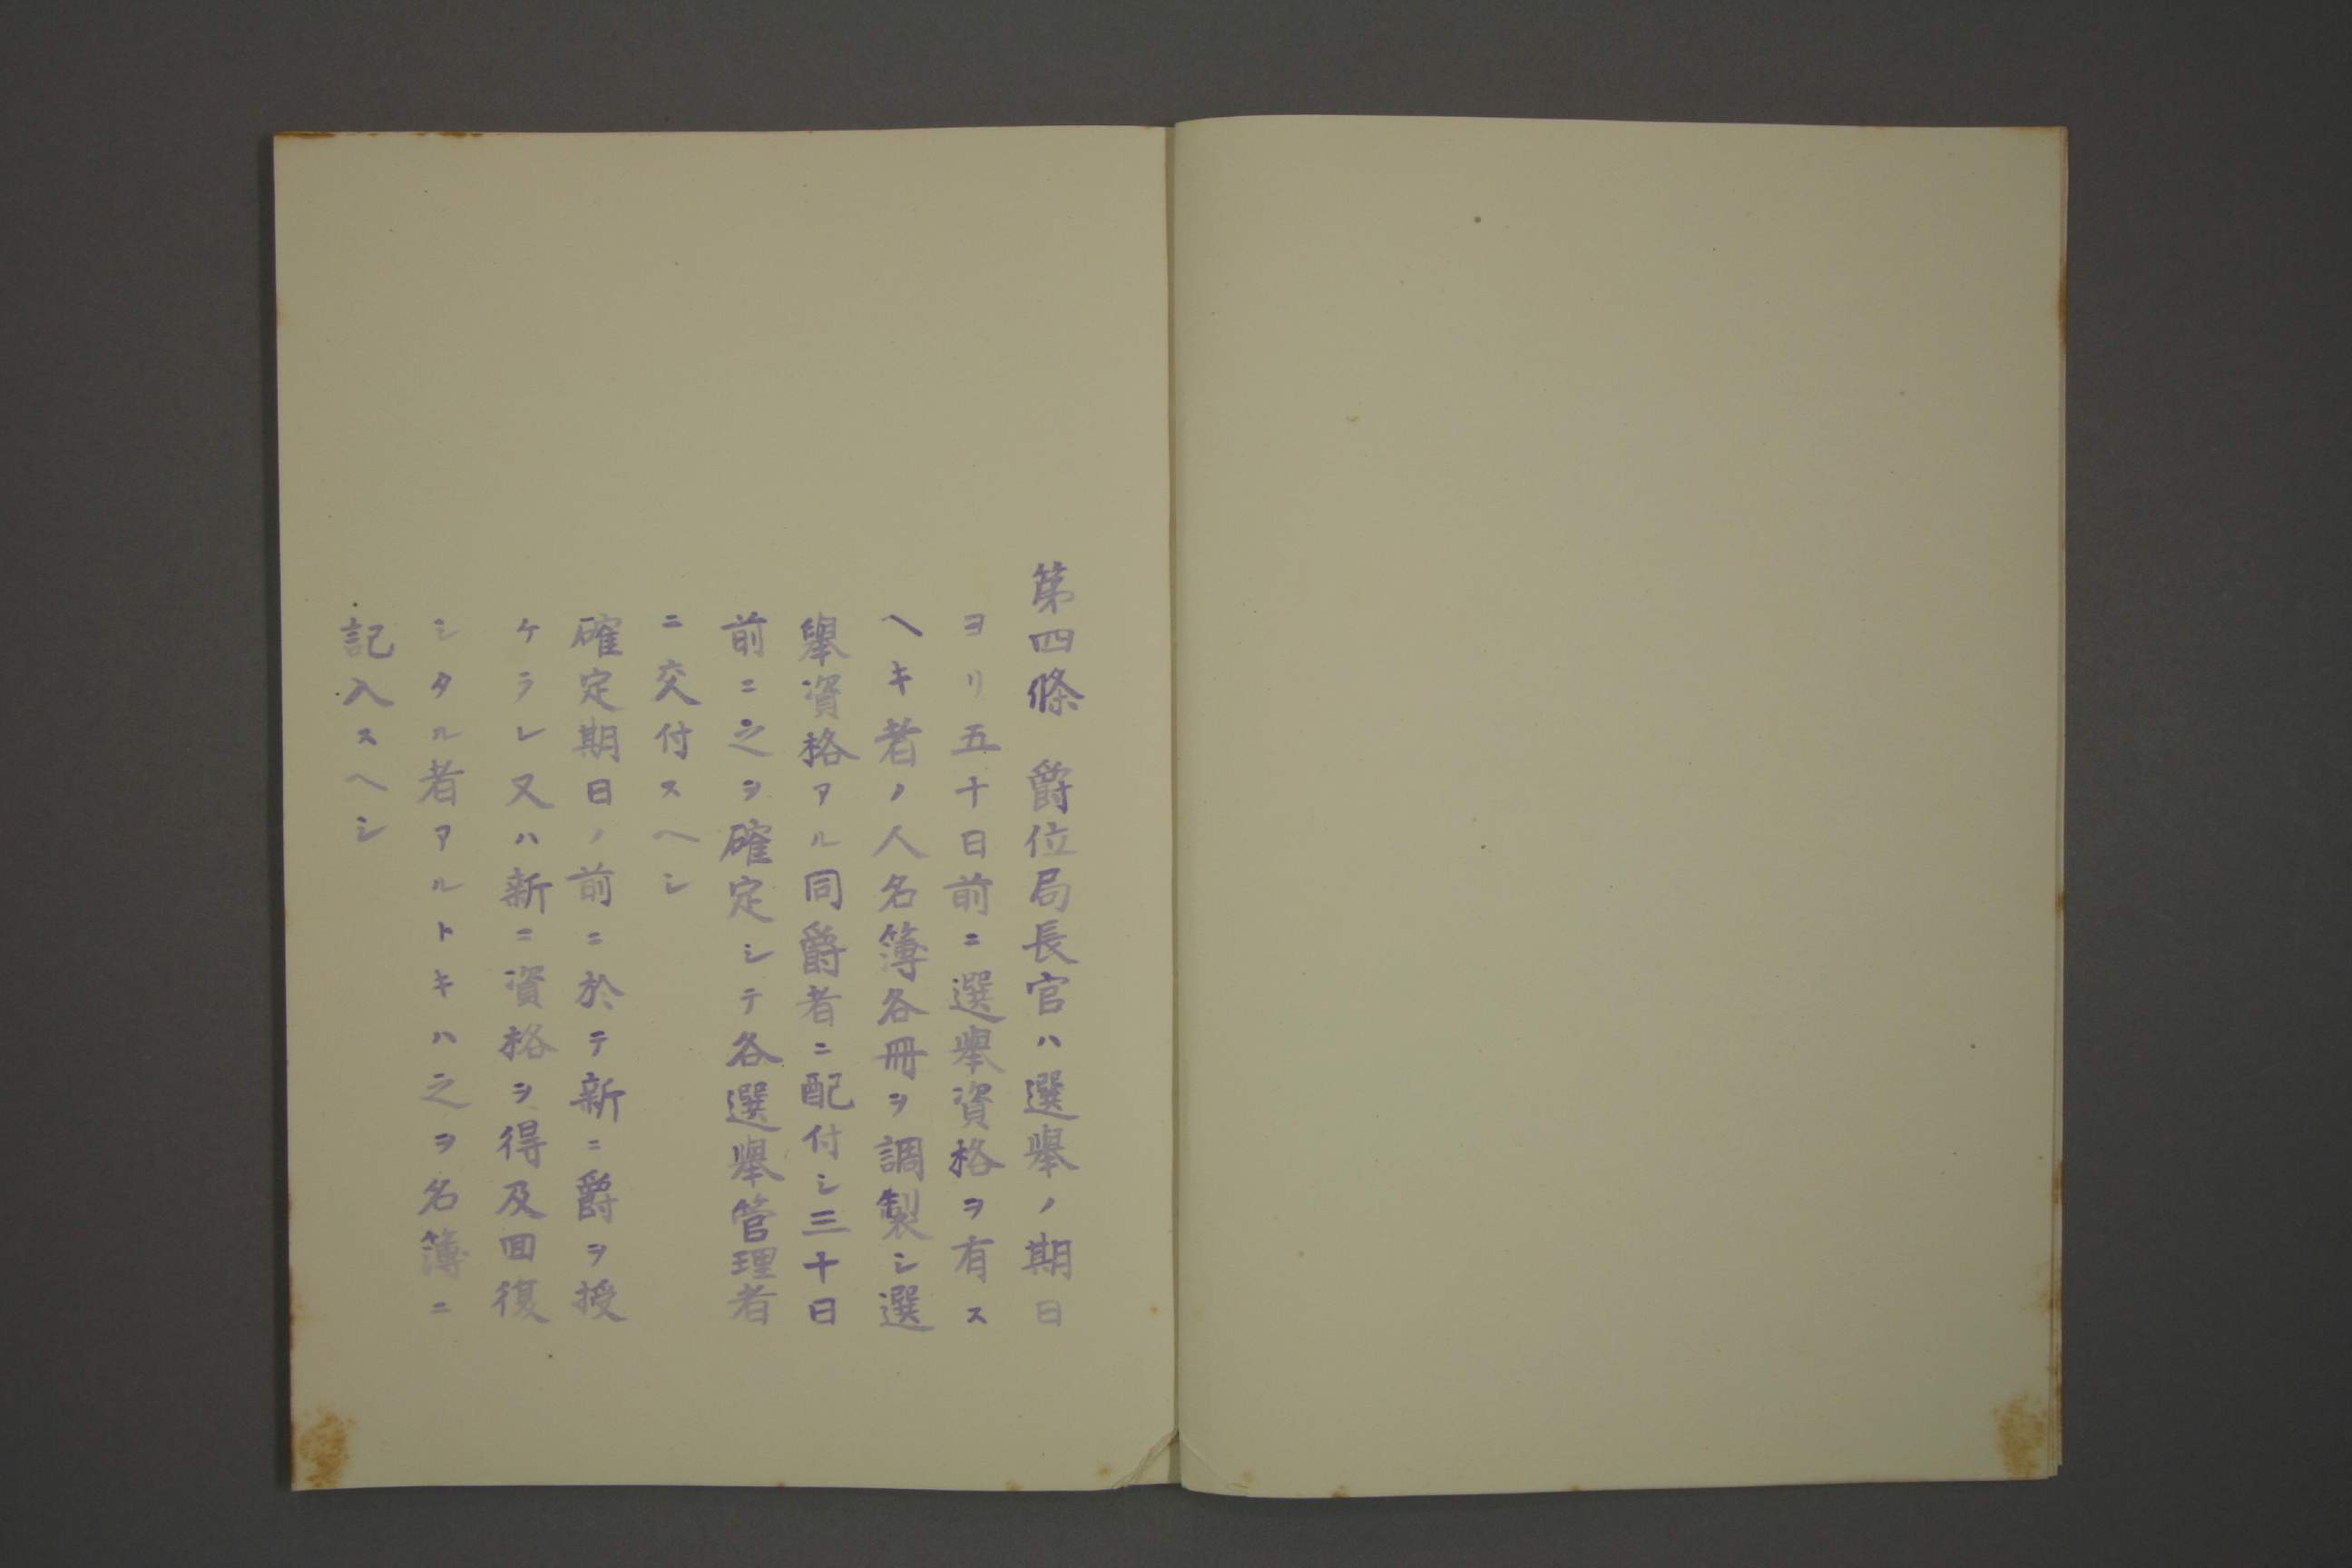 第四條　爵位局長官ハ選擧ノ期日
ヨリ五十日前ニ選擧資格ヲ有ス
ヘキ者ノ人名簿各冊ヲ調製シ選
擧資格アル同爵者ニ配付シ三十日
前ニ之ヲ確定シテ各選擧管理者
ニ交付スヘシ
確定期日ノ前ニ於テ新ニ爵ヲ授
ケラレ又ハ新ニ資格ヲ得及囬復
シタル者アルトキハ之ヲ名簿ニ
記入スヘシ